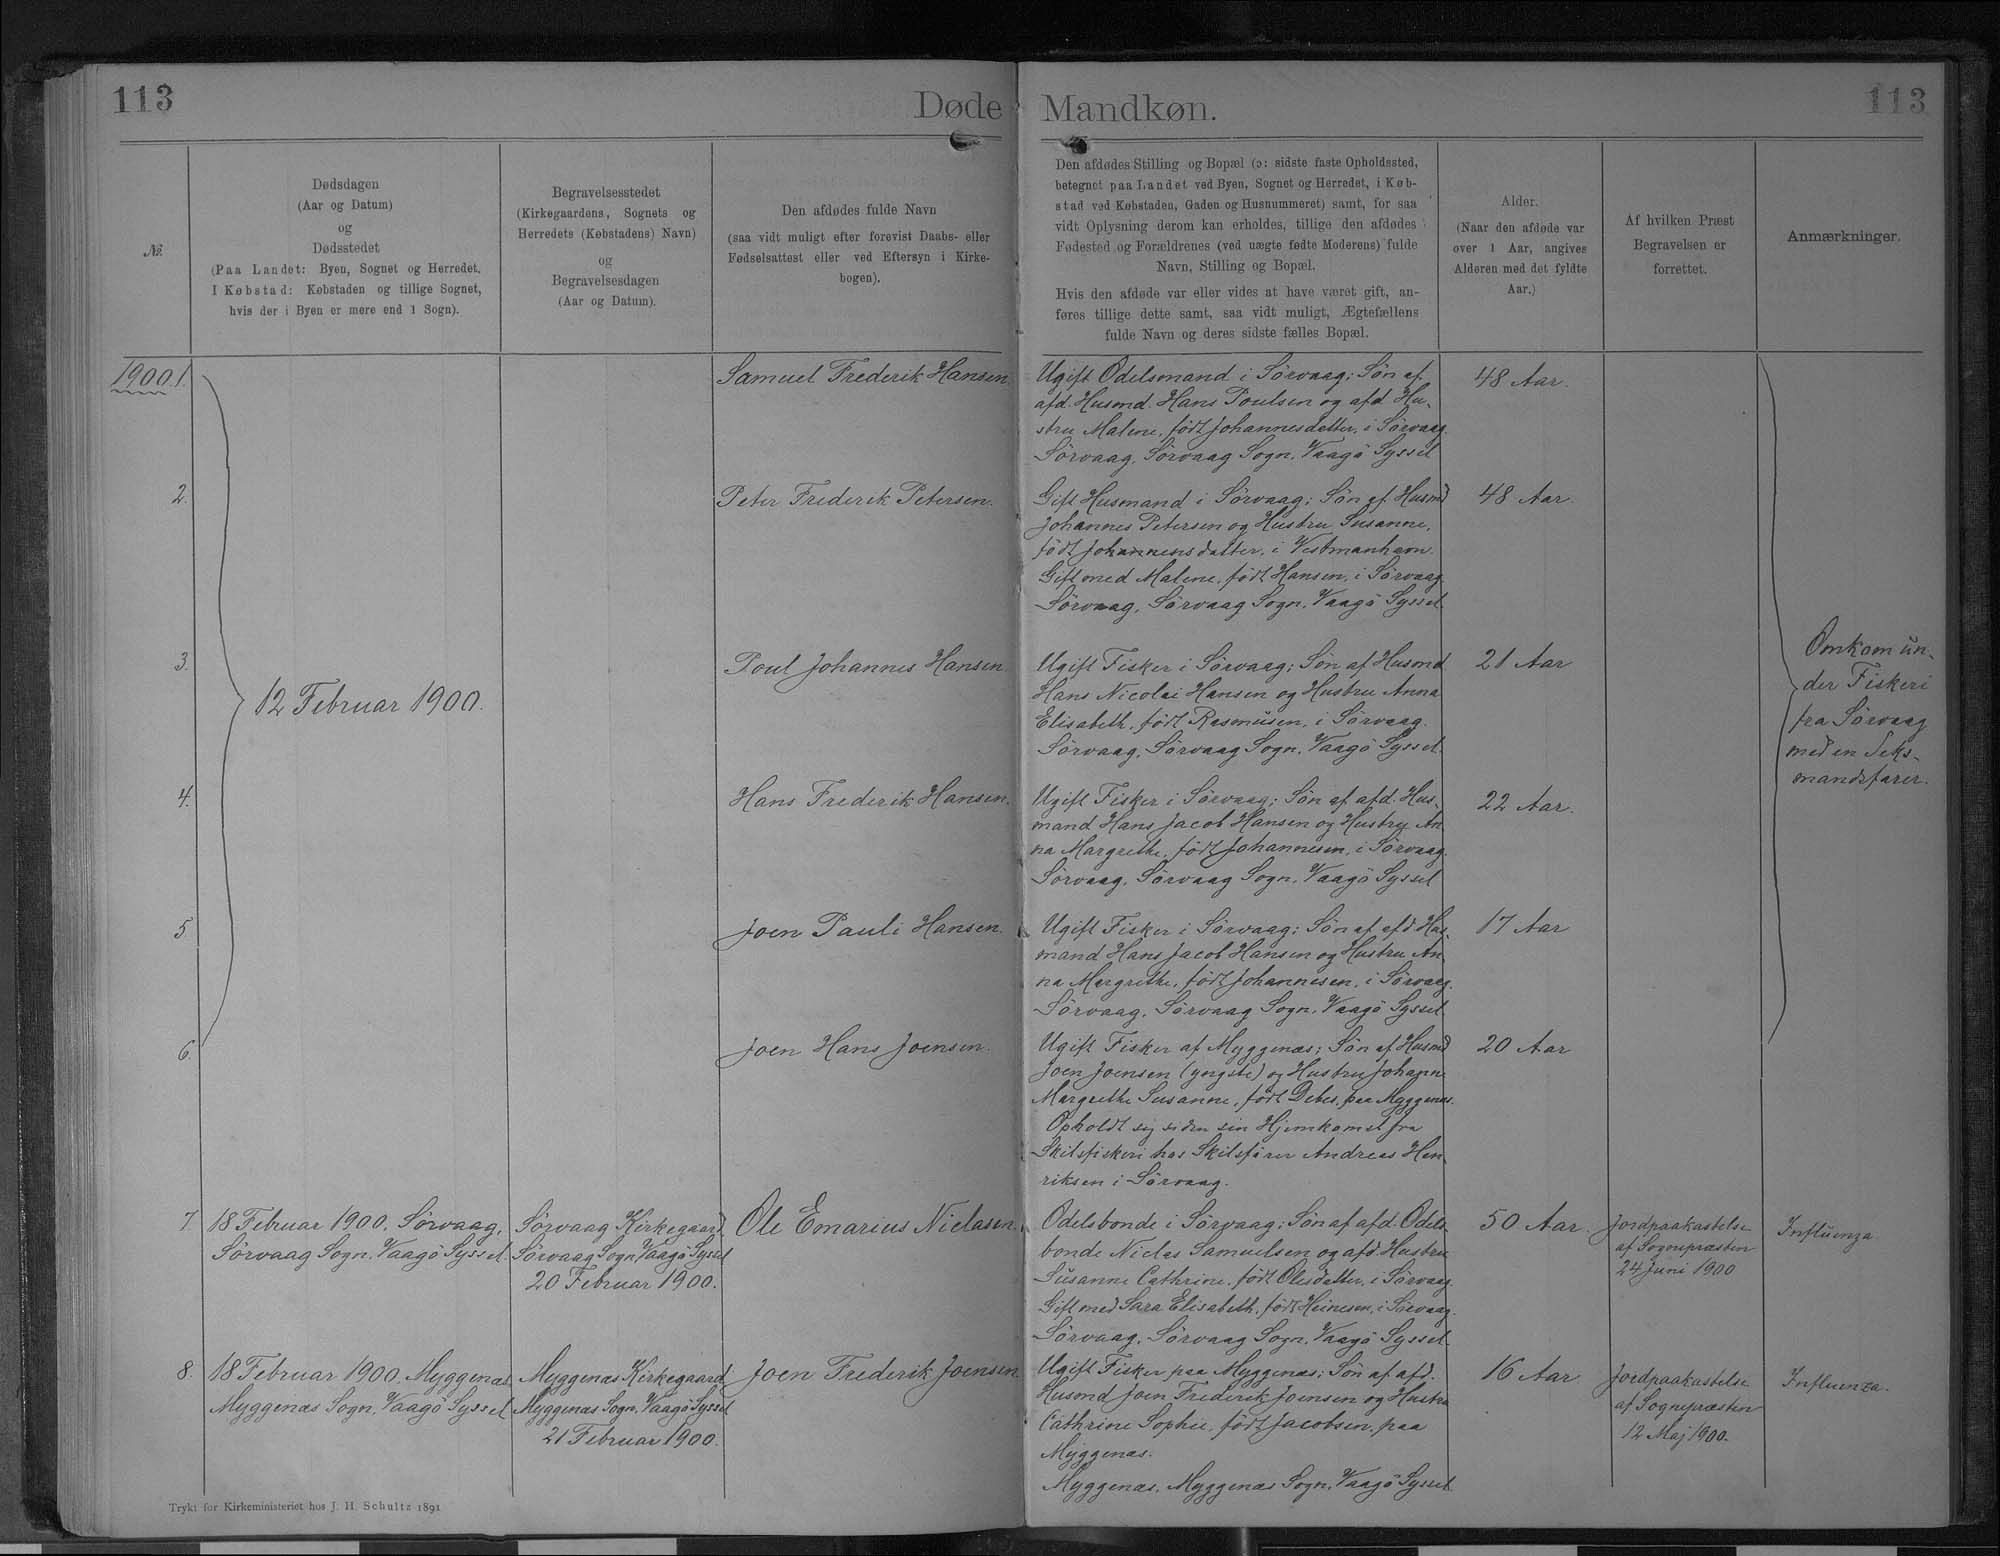 113
Døde Mandkøn.
113
№.
Dødsdagen
(Aar og Datum)
og
Dødsstedet
(Paa Landet: Byen, Sognet og Herredet.
I Købstad: Købstaden og tillige Sognet,
hvis der i Byen er mere end 1 Sogn).
Begravelsesstedet
(Kirkegaardens, Sognets og
Herredets (Købstadens) Navn)
og
Begravelsesdagen
(Aar og Datum).
Den afdødes fulde Navn
(saa vidt muligt efter forevist Daabs- eller
Fødselsattest eller ved Eftersyn i Kirke-
bogen).
Den afdødes Stilling og Bopæl (ɔ: sidste faste Opholdssted,
betegnet paa Landet ved Byen, Sognet og Herredet, i Køb-
stad ved Købstaden, Gaden og Husnummeret) samt, for saa
vidt Oplysning derom kan erholdes, tillige den afdødes
Fødested og Forældrenes (ved uægte fødte Moderens) fulde
Navn, Stilling og Bopæl.
Hvis den afdøde var eller vides at have været gift, an-
føres tillige dette samt, saa vidt muligt, Ægtefællens
fulde Navn og deres sidste fælles Bopæl.
Alder.
(Naar den afdøde var
over 1 Aar, angives
Alderen med det fyldte
Aar.)
Af hvilken Præst
Begravelsen er
forrettet.
Anmærkninger.
1900. 1.
Samuel Frederik Hansen.
Ugift Odelsmand i Sörvaag; Sön af
afd. Husmd. Hans Poulsen og afd. Hu-
stru Malene, födt Johannesdatter, i Sörvaag.
Sörvaag, Sörvaag Sogn, Vaagö Syssel
48 Aar.
2.
Peter Frederik Petersen.
Gift Husmand i Sörvaag; Sön af Husmd
Johannes Petersen og Hustru Susanne,
födt Johannensdatter, i Vestmanhavn.
Gift med Malene, födt Hansen, i Sörvaag.
Sörvaag, Sörvaag Sogn, Vaagö Syssel.
48 Aar.
3.
12 Februar 1900.
Poul Johannes Hansen.
Ugift Fisker i Sörvaag; Sön af Husmd
Hans Nicolai Hansen og Hustru Anna
Elisabeth, födt Rasmusen, i Sörvaag.
Sörvaag, Sörvaag Sogn, Vaagö Syssel.
21 Aar
Omkom un-
der Fiskeri
fra Sörvaag
med en Seks-
mandsfarer.
4.
Hans Frederik Hansen.
Ugift Fisker i Sörvaag; Sön af afd. Hus-
mand Hans Jacob Hansen og Hustru An-
na Margrethe, födt Johannesen, i Sörvaag.
Sörvaag, Sörvaag Sogn, Vaagö Syssel
22 Aar.
5
Joen Pauli Hansen.
Ugift Fisker i Sörvaag; Sön af afd. Hus-
mand Hans Jacob Hansen og Hustru An-
na Margrethe, födt Johannesen, i Sörvaag.
Sörvaag, Sörvaag Sogn, Vaagö Syssel
17 Aar
6.
Joen Hans Joensen.
Ugift Fisker af Myggenæs; Sön af Husmd
Joen Joensen (yngste) og Hustru Johanne
Margrethe Susanne, födt Debes, paa Myggenæs.
Opholdt sig siden sin Hjemkomst fra
Skibsfiskeri hos Skibsförer Andreas Hen-
riksen i Sörvaag.
20 Aar
7.
18 Februar 1900. Sörvaag,
Sörvaag Sogn, Vaagö Syssel.
Sörvaag Kirkegaard,
Sörvaag Sogn, Vaagö Syssel
20 Februar 1900.
Ole Emarius Niclasen.
Odelsbonde i Sörvaag; Sön af afd. Odels-
bonde Niclas Samuelsen og afd. Hustru
Susanne Cathrine, födt Olesdatter, i Sörvaag.
Gift med Sara Elisabeth, födt Heinesen, i Sörvaag.
Sörvaag, Sörvaag Sogn, Vaagö Syssel.
50 Aar.
Jordpaakastelse
af Sognepræsten
24 Juni 1900
Influenza
8.
18 Februar 1900. Myggenæs
Myggenæs Sogn, Vaagö Syssel
Myggenæs Kirkegaard
Myggenæs Sogn, Vaagö Syssel
21 Februar 1900.
Joen Frederik Joensen
Ugift Fisker paa Myggenæs; Sön af afd.
Husmd Joen Frederik Joensen og Hustru
Cathrine Sophie, födt Jacobsen, paa
Myggenæs.
Myggenæs, Myggenæs Sogn, Vaagö Syssel
16 Aar
Jordpaakastelse
af Sognepræsten
12 Maj 1900.
Influenza.
Trykt for Kirkeministeriet hos J. H. Schultz 1891